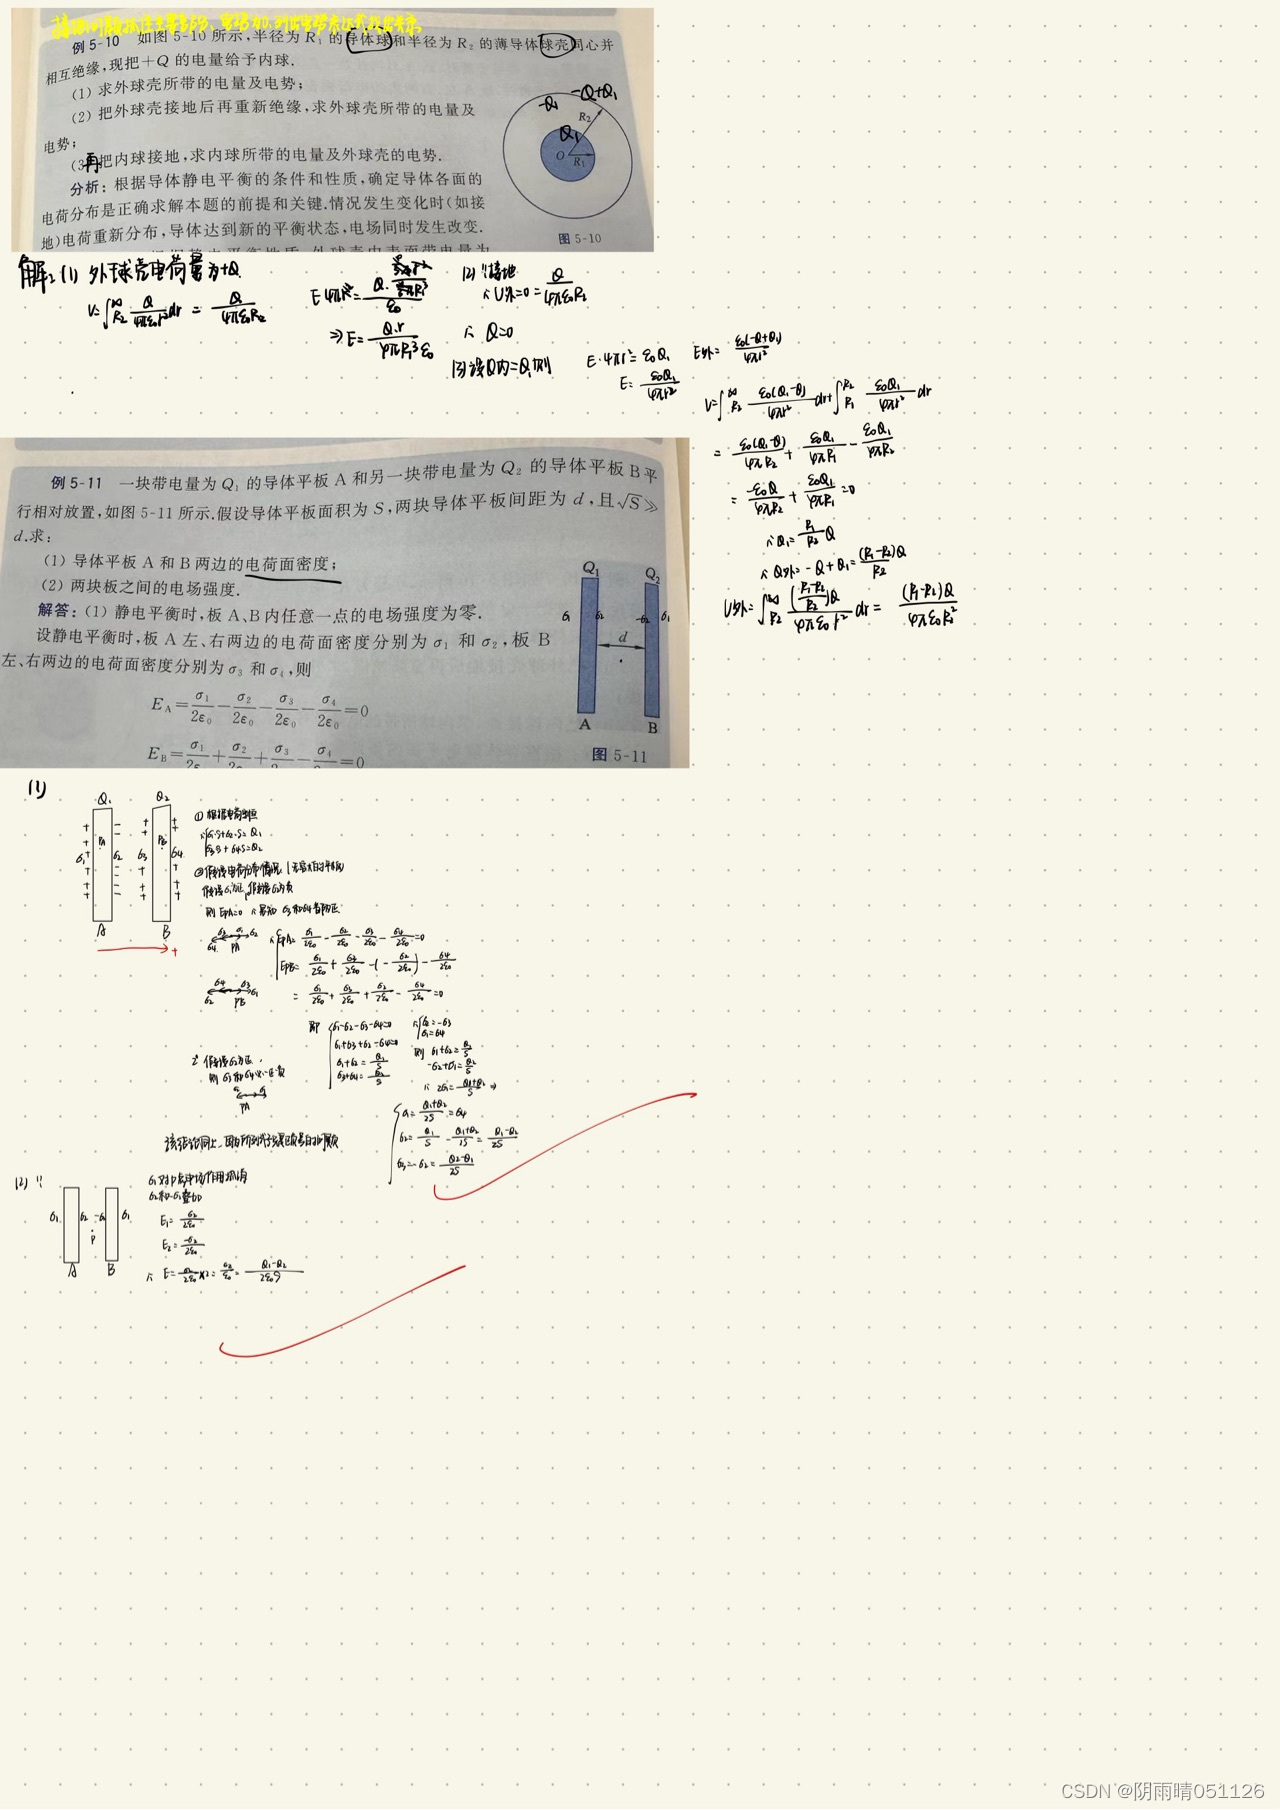 例 5-10 如图 5-10 所示,半径为 R₁ 的导体球和半径为 R₂ 的薄导体球壳同心并
相互绝缘,现把+Q 的电量给予内球.
(1) 求外球壳所带的电量及电势;
(2) 把外球壳接地后再重新绝缘,求外球壳所带的电量及
电势;
(3)再把内球接地,求内球所带的电量及外球壳的电势.
分析:根据导体静电平衡的条件和性质,确定导体各面的
电荷分布是正确求解本题的前提和关键.情况发生变化时(如接
地)电荷重新分布,导体达到新的平衡状态,电场同时发生改变.
-Q₁ -Q+Q₁
Q₁
R₂
O R₁
图 5-10
解:(1) 外球壳电荷量为+Q
V=∫_{R₂}^{∞} Q/4πε₀r² dr = Q/4πε₀R₂
⇒E= Q·r/4πR₁³ε₀
(2) ∵接地
∴U外=0= Q/4πε₀R₂
∴ Q=0
(3) 设Q内=Q₁,则
E·4πr²= ε₀Q₁
E= ε₀Q₁/4πr²
E外= ε₀(-Q+Q₁)/4πr²
V=∫_{R₂}^{∞} ε₀(Q₁-Q)/4πr² dr+∫_{R₁}^{R₂} ε₀Q₁/4πr² dr
= ε₀(Q₁-Q)/4πR₂ + ε₀Q₁/4πR₁ - ε₀Q₁/4πR₂
= -ε₀Q/4πR₂ + ε₀Q₁/4πR₁ =0
∴Q₁= R₁/R₂ Q
∴ Q外= -Q+Q₁= (R₁-R₂)Q/R₂
U外=∫_{R₂}^{∞} ((R₁-R₂)/R₂)Q/4πε₀r² dr = (R₁-R₂)Q/4πε₀R₂²
例 5-11 一块带电量为 Q₁ 的导体平板 A 和另一块带电量为 Q₂ 的导体平板 B 平
行相对放置,如图 5-11 所示.假设导体平板面积为 S,两块导体平板间距为 d,且√S≫
d.求:
(1) 导体平板 A 和 B 两边的电荷面密度;
(2) 两块板之间的电场强度.
解答:(1) 静电平衡时,板 A、B 内任意一点的电场强度为零.
设静电平衡时,板 A 左、右两边的电荷面密度分别为 σ₁ 和 σ₂,板 B
左、右两边的电荷面密度分别为 σ₃ 和 σ₄,则
E_A= σ₁/2ε₀ - σ₂/2ε₀ - σ₃/2ε₀ - σ₄/2ε₀ =0
E_B= σ₁/2ε₀ + σ₂/2ε₀ + σ₃/2ε₀ - σ₄/2ε₀ =0
Q₁ Q₂
σ₁ σ₂ -σ₂ σ₁
d
A B
图 5-11
(1)
Q₁ Q₂
PA PB
σ₁ σ₂ σ₃ σ₄
A B
+
① 根据电荷守恒
∴ σ₁·S+σ₂·S= Q₁
σ₃S+σ₄S=Q₂
②假设电荷分布情况
假设σ₁为正,假设σ₂为负
则 EpA=0
∴ EpA= σ₁/2ε₀ - σ₂/2ε₀ - σ₃/2ε₀ - σ₄/2ε₀ =0
= σ₁/2ε₀ + σ₃/2ε₀ + σ₂/2ε₀ - σ₄/2ε₀ =0
即 σ₁-σ₂-σ₃-σ₄=0
σ₁+σ₃+σ₂-σ₄=0
σ₁+σ₂= Q₁/S
σ₃+σ₄= Q₂/S
∴ σ₂=-σ₃
σ₁=σ₄
则 σ₁+σ₂= Q₁/S
-σ₂+σ₁= Q₂/S
∴ 2σ₁= (Q₁+Q₂)/S ⇒
2° 假设σ₂为正,
PA
σ₁= (Q₁+Q₂)/2S =σ₄
σ₂= Q₁/S - (Q₁+Q₂)/2S = (Q₁-Q₂)/2S
σ₃=-σ₂= (Q₂-Q₁)/2S
(2) ∵
σ₁ σ₂ -σ₂ σ₁
P
A B
σ₁对P点电场作用抵消
E₁= σ₂/2ε₀
E₂= -σ₂/2ε₀
∴ E= σ₂/2ε₀ ×2= σ₂/ε₀ = (Q₁-Q₂)/2ε₀S
CSDN @阴雨晴051126